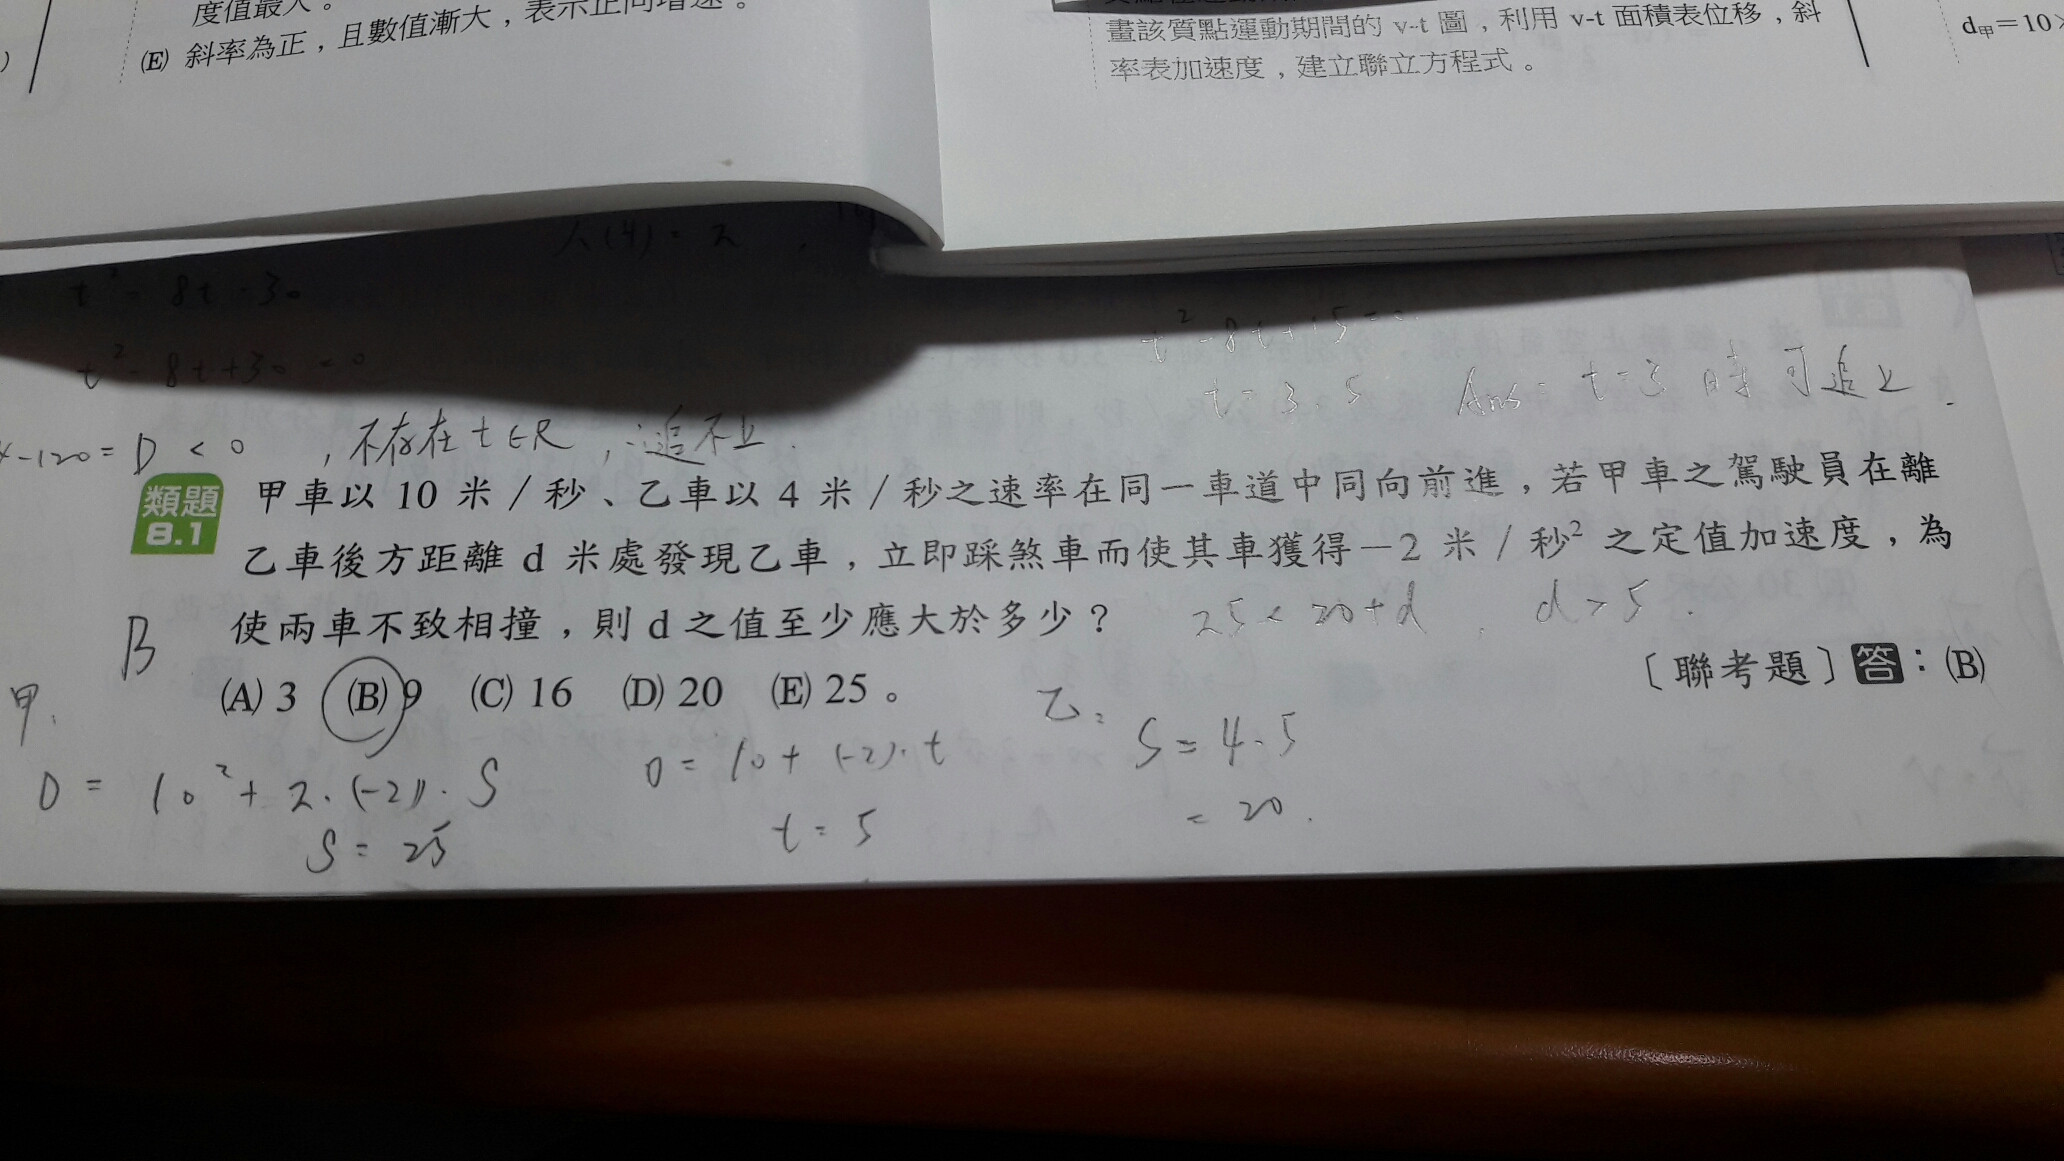 度值最大。
(E) 斜率為正，且數值漸大，表示正向增速。
畫該質點運動期間的 v-t 圖，利用 v-t 面積表位移，斜
率表加速度，建立聯立方程式。
d甲＝10
t² - 8t - 30
t² - 8t + 30 = 0
-120 = D < 0 , 不存在 t∈R , ∴追不上.
t² - 8t + 15 =
t = 3, 5 Ans = t = 3 時可追上.
類題 8.1 甲車以 10 米／秒、乙車以 4 米／秒之速率在同一車道中同向前進，若甲車之駕駛員在離
乙車後方距離 d 米處發現乙車，立即踩煞車而使其車獲得－2 米／秒² 之定值加速度，為
使兩車不致相撞，則 d 之值至少應大於多少？
25 < 20 + d , d > 5 .
B
(A) 3 (B) 9 (C) 16 (D) 20 (E) 25。
〔聯考題〕答：(B)
甲.
0 = 10² + 2·(-2)·S
S = 25
0 = 10 + (-2)·t
t = 5
乙:
S = 4·5
= 20.